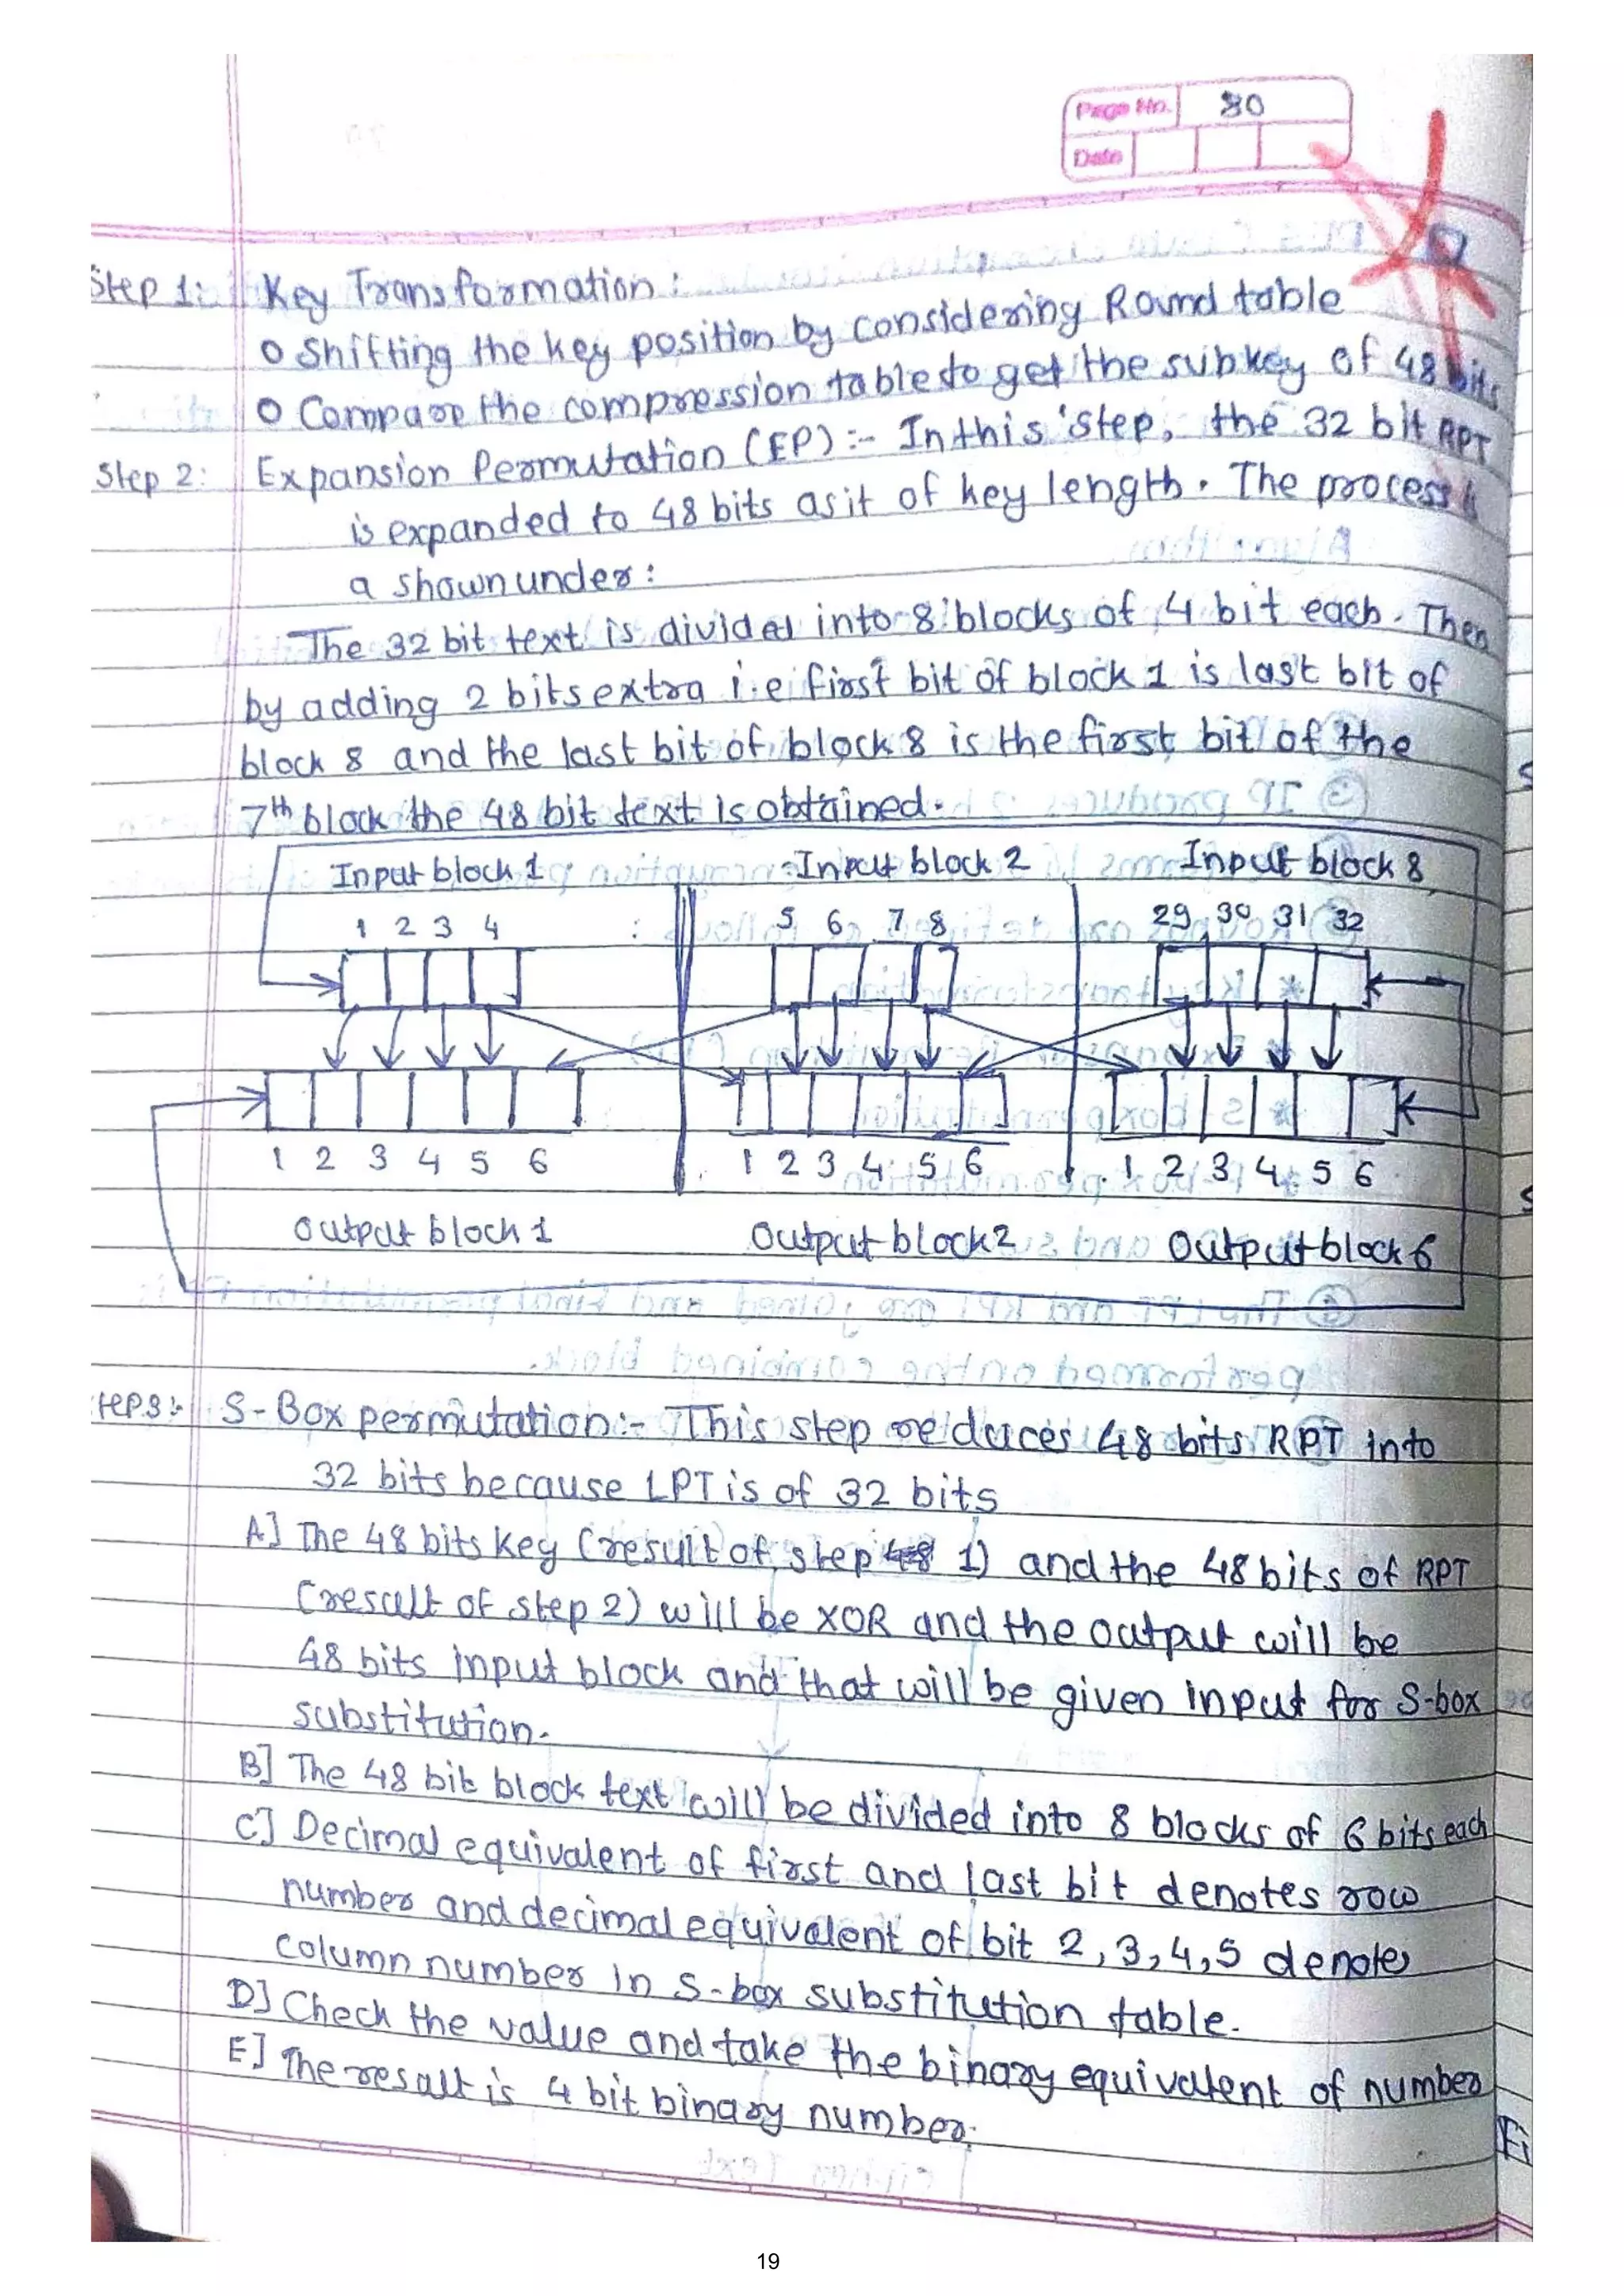 Page No. 80
Date
Step 1: Key Transformation :
o Shifting the key position by considering Round table
o Compare the compression table to get the subkey of 48 bits
Step 2: Expansion Permutation (EP) :- In this step, the 32 bit RPT
is expanded to 48 bits as it of key length. The process is
a shown under :
The 32 bit text is divided into 8 blocks of 4 bit each. Then
by adding 2 bits extra i.e first bit of block 1 is last bit of
block 8 and the last bit of block 8 is the first bit of the
7th block the 48 bit text is obtained.
Input block 1 Input block 2 Input block 8
1 2 3 4 5 6 7 8 29 30 31 32
1 2 3 4 5 6 1 2 3 4 5 6 1 2 3 4 5 6
Output block 1 Output block 2 Output block 6
tep 3 :- S-Box permutation :- This step reduces 48 bits RPT into
32 bits because LPT is of 32 bits
A] The 48 bits key (result of step 1) and the 48 bits of RPT
(result of step 2) will be XOR and the output will be
48 bits input block and that will be given input for S-box
substitution.
B] The 48 bit block text will be divided into 8 blocks of 6 bits each
C] Decimal equivalent of first and last bit denotes row
number and decimal equivalent of bit 2, 3, 4, 5 denotes
column number in S-box substitution table.
D] Check the value and take the binary equivalent of number
E] The result is 4 bit binary number.
Fi
19